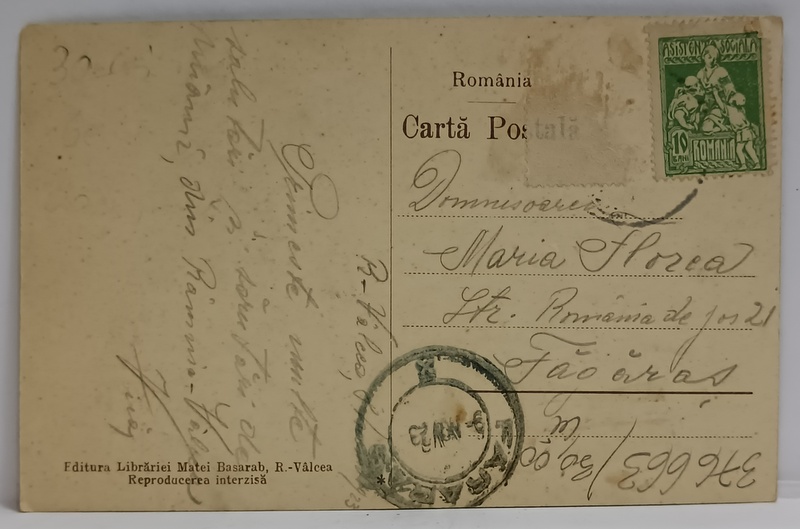 România
Carta Poștală
ASISTENȚA SOCIALA
10
BANI
ROMANIA
Domnisoarei
Maria Florea
Str. România de jos 21
Făgăraș
R-Vâlcea,
Primeste multe
salutări și sărutări de
din Râmnic-Vâlcea
FAGARAS
23
376663/30,00
Editura Librăriei Matei Basarab, R.-Vâlcea
Reproducerea interzisă